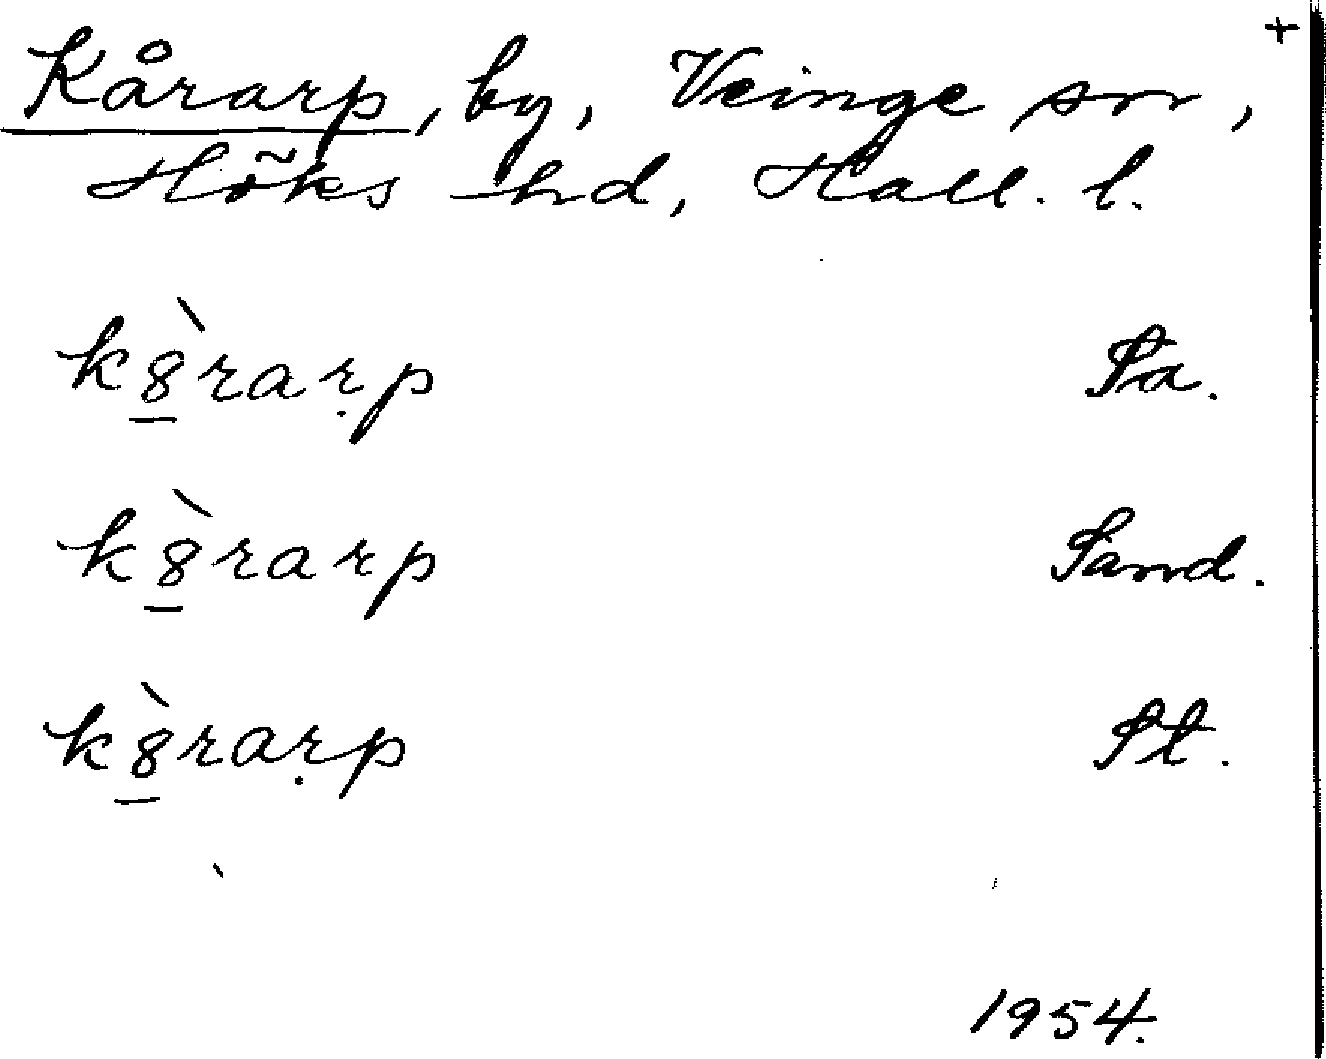 +
Kårarp, by, Veinge sn,
Höks hd, Hall. l.
k8̲̀rarp Sa.
k8̲̀rarp Sand.
k8̲̀rarp St.
1954.